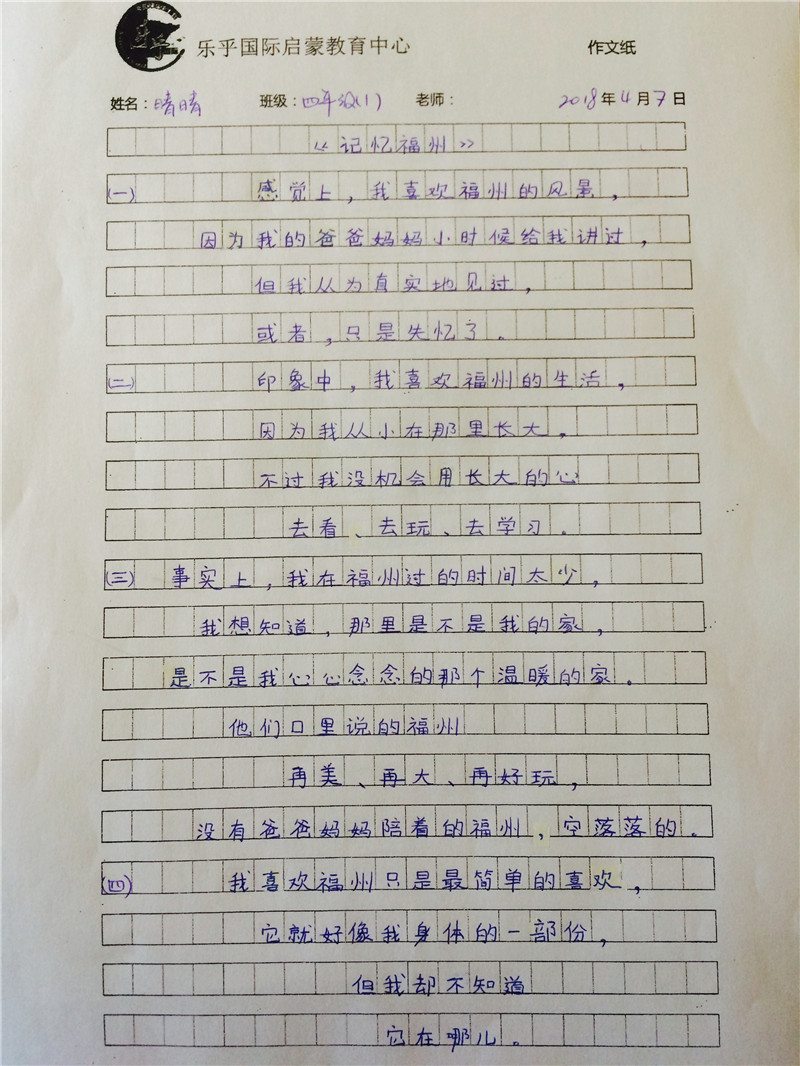 乐乎国际启蒙教育中心 作文纸
姓名：晴晴 班级：四年级(1) 老师： 2018年4月7日
《记忆福州》
(一) 感觉上，我喜欢福州的风景，
因为我的爸爸妈妈小时候给我讲过，
但我从为真实地见过，
或者，只是失忆了。
(二) 印象中，我喜欢福州的生活，
因为我从小在那里长大，
不过我没机会用长大的心
去看、去玩、去学习。
(三) 事实上，我在福州过的时间太少，
我想知道，那里是不是我的家，
是不是我心心念念的那个温暖的家。
他们口里说的福州
再美、再大、再好玩，
没有爸爸妈妈陪着的福州，空落落的。
(四) 我喜欢福州只是最简单的喜欢，
它就好像我身体的一部份，
但我却不知道
它在哪儿。